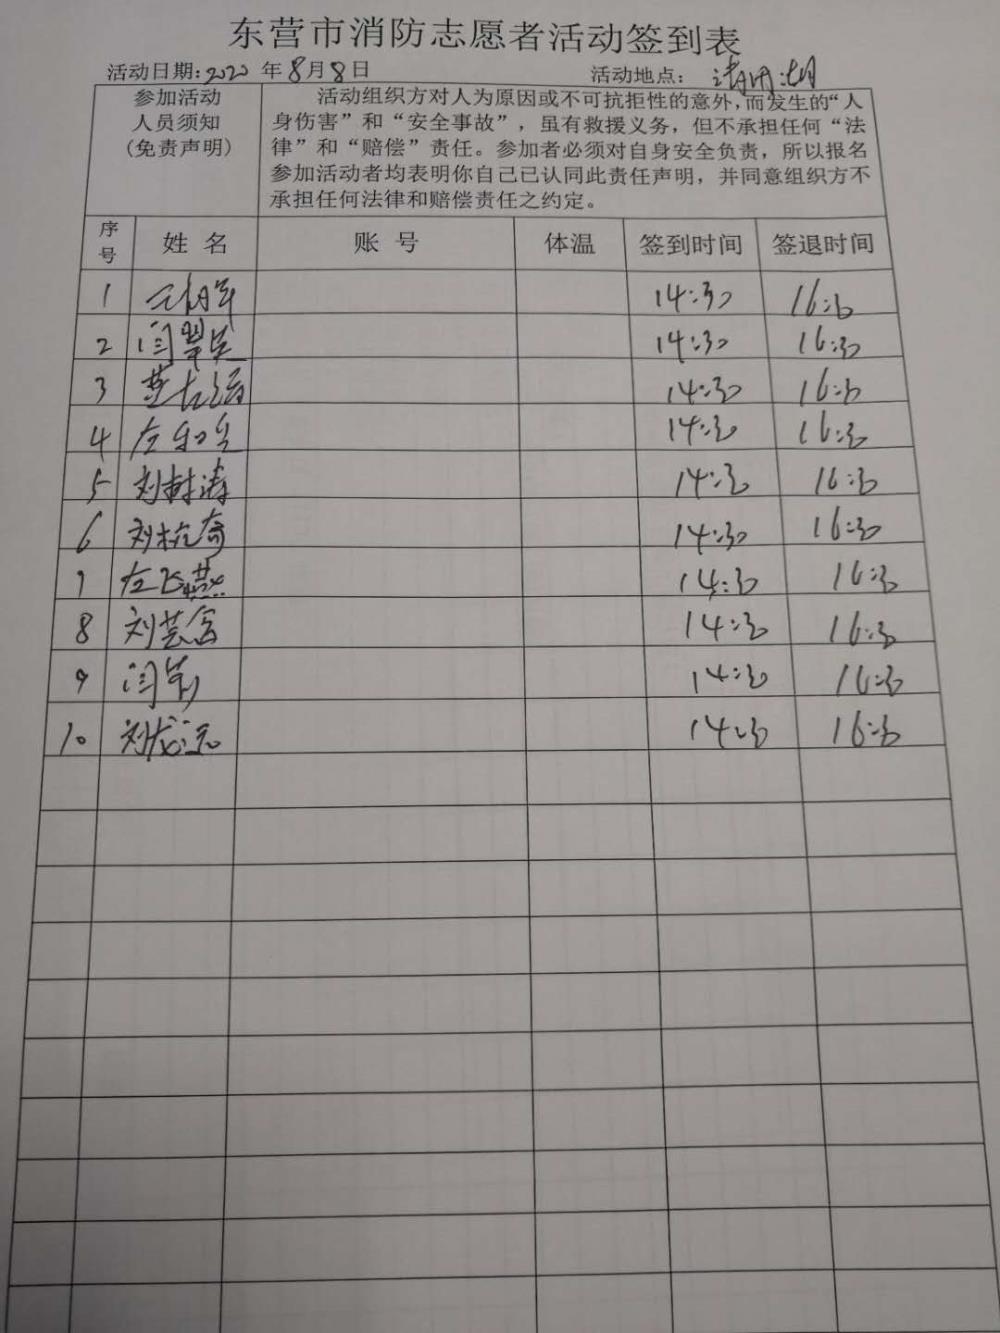 东营市消防志愿者活动签到表
活动日期:2020 年8月8日 活动地点: 清风湖
参加活动
人员须知
(免责声明)
活动组织方对人为原因或不可抗拒性的意外,而发生的“人
身伤害”和“安全事故”，虽有救援义务，但不承担任何“法
律”和“赔偿”责任。参加者必须对自身安全负责，所以报名
参加活动者均表明你自己已认同此责任声明，并同意组织方不
承担任何法律和赔偿责任之约定。
序号 姓 名 账 号 体温 签到时间 签退时间
1 14:30 16:30
2 闫翠英 14:30 16:30
3 14:30 16:30
4 14:30 16:30
5 刘树涛 14:30 16:30
6 刘杭奇 14:30 16:30
7 左飞燕 14:30 16:30
8 刘芸含 14:30 16:30
9 闫 14:30 16:30
10 刘龙运 14:30 16:30